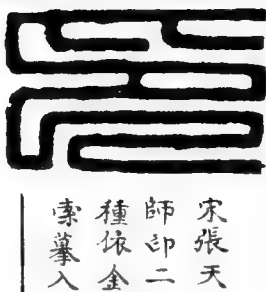 宋張天
師印二
種依金
索摹入